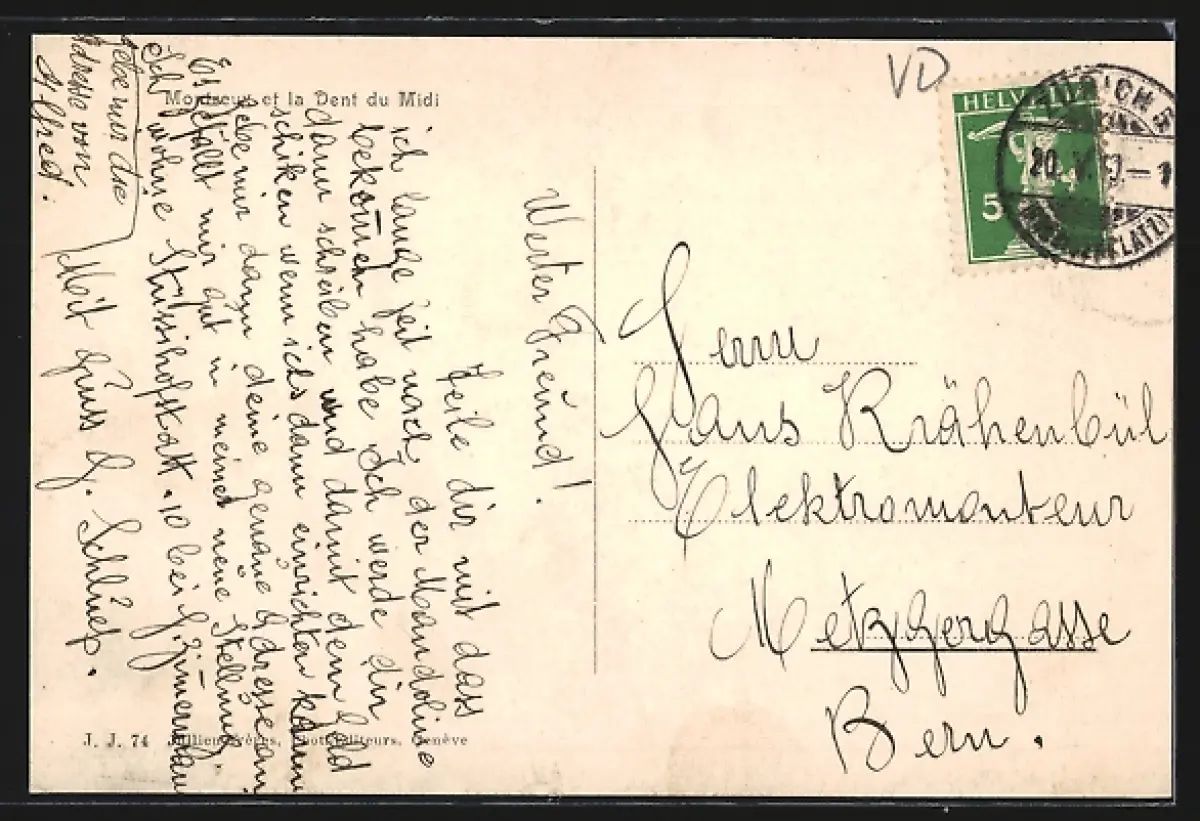 Montreux et la Dent du Midi
Werter Freund!
Teile dir mit dass
ich lange Zeit nach der Mandoline
bekomen habe Ich werde dir
dann schreiben und damit dem Geld
schiken wenn ichs dann einrichten kann
gebe mir dann deine genaue Adresse an
Es gefällt mir gut in meiner neue Stellung.
Ich wohne Stüssihofstatt. 10 bei
Mit Gruss G. Schlüep.
gebe mir die
Adresse von
Alfred.
J. J. 74 Jullien Frères, Phot. Editeurs, Genève
VD
HELVETIA
5
ZÜRICH
20.
Herrn
Hans Krähenbül
Elektromonteur
Metzgergasse
Bern.